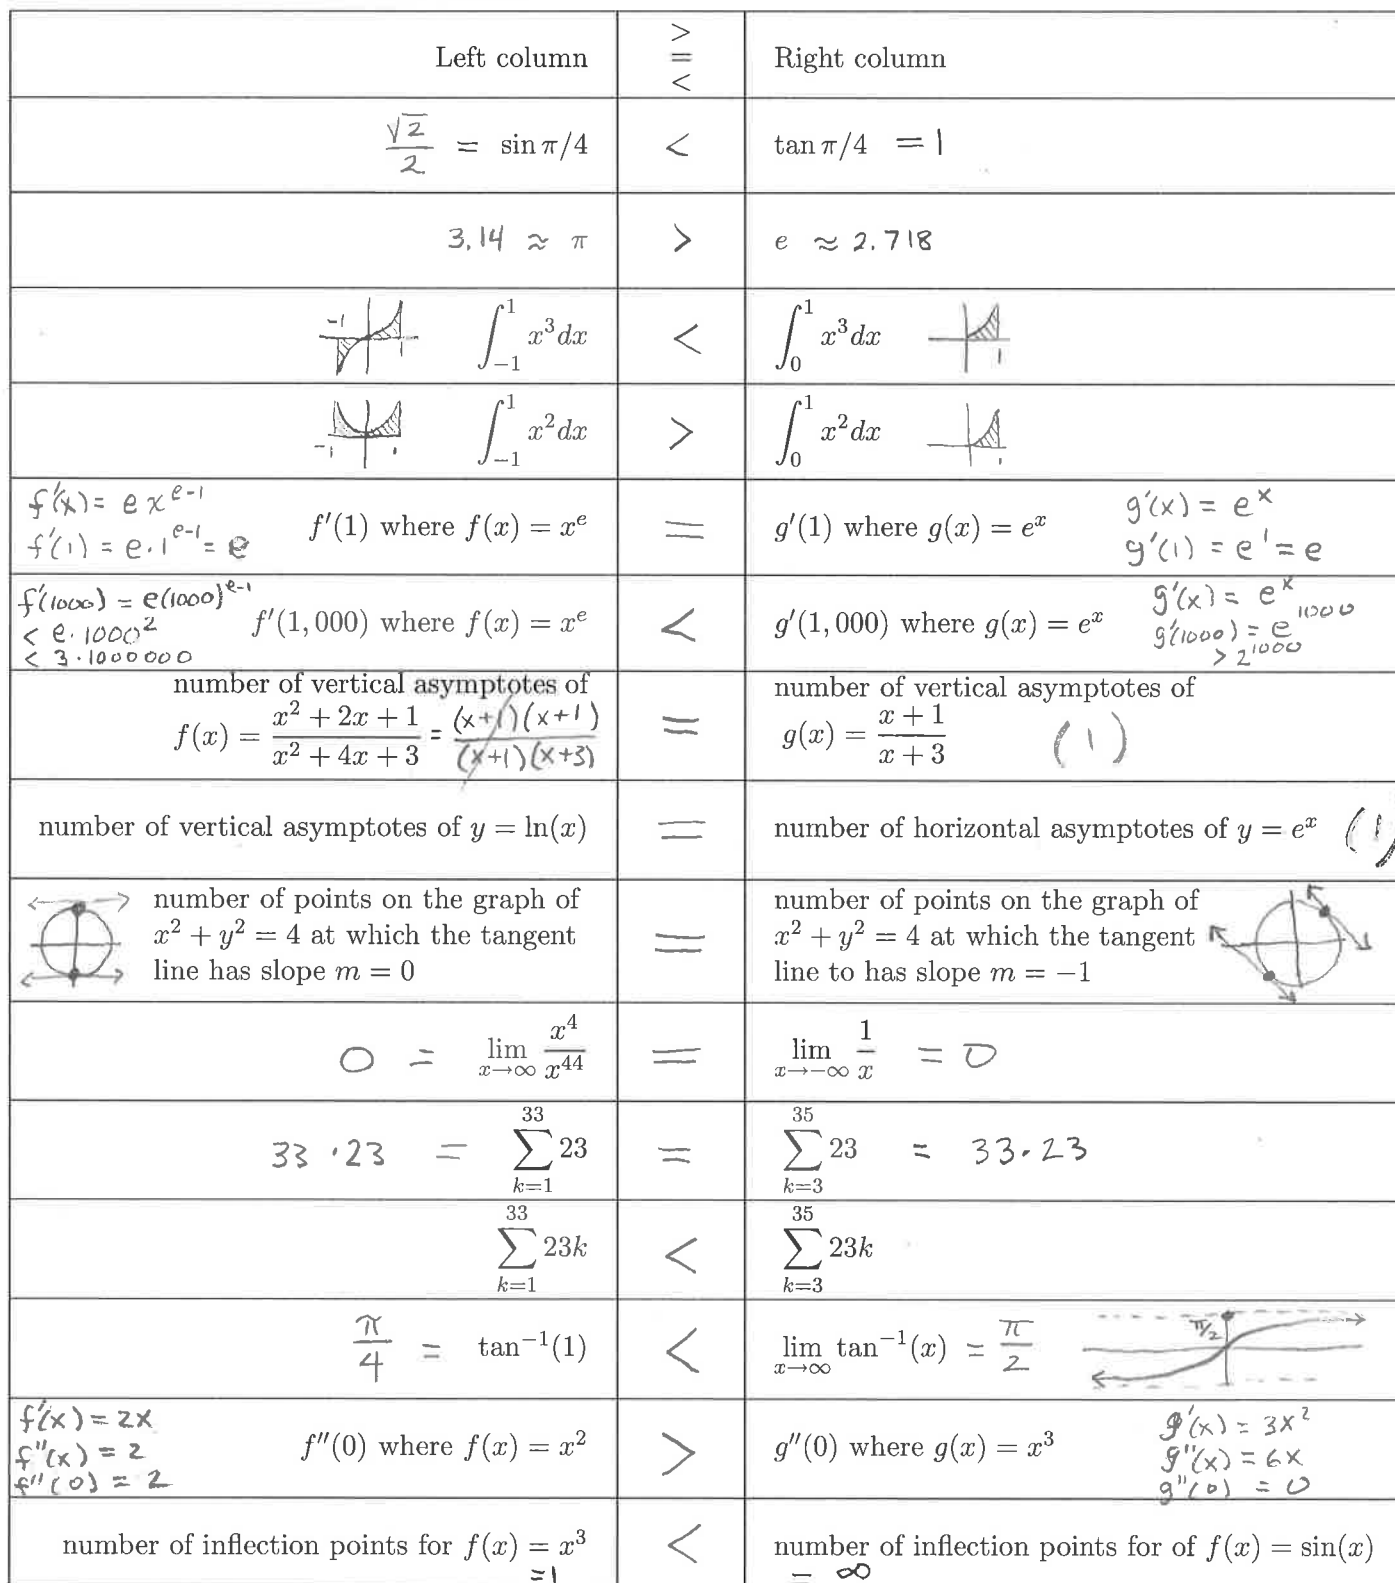 Left column > = < Right column
√2/2 = sin π/4 < tan π/4 = 1
3.14 ≈ π > e ≈ 2.718
-1 1 ∫_{-1}^{1} x^3 dx < ∫_0^1 x^3 dx 1
-1 1 ∫_{-1}^{1} x^2 dx > ∫_0^1 x^2 dx 1
f'(x) = e x^{e-1}
f'(1) = e·1^{e-1} = e
f'(1) where f(x) = x^e = g'(1) where g(x) = e^x
g'(x) = e^x
g'(1) = e^1 = e
f'(1000) = e(1000)^{e-1}
< e·1000^2
< 3·1000000
f'(1,000) where f(x) = x^e < g'(1,000) where g(x) = e^x
g'(x) = e^x
g'(1000) = e^{1000}
> 2^{1000}
number of vertical asymptotes of
f(x) = (x^2 + 2x + 1)/(x^2 + 4x + 3) = (x+1)(x+1)/(x+1)(x+3)
=
number of vertical asymptotes of
g(x) = (x + 1)/(x + 3) (1)
number of vertical asymptotes of y = ln(x) = number of horizontal asymptotes of y = e^x (1)
number of points on the graph of
x^2 + y^2 = 4 at which the tangent
line has slope m = 0
=
number of points on the graph of
x^2 + y^2 = 4 at which the tangent
line to has slope m = −1
0 = lim_{x→∞} x^4/x^{44} = lim_{x→−∞} 1/x = 0
33·23 = ∑_{k=1}^{33} 23 = ∑_{k=3}^{35} 23 = 33·23
∑_{k=1}^{33} 23k < ∑_{k=3}^{35} 23k
π/4 = tan^{−1}(1) < lim_{x→∞} tan^{−1}(x) = π/2 π/2
f'(x) = 2x
f''(x) = 2
f''(0) = 2
f''(0) where f(x) = x^2 > g''(0) where g(x) = x^3
g'(x) = 3x^2
g''(x) = 6x
g''(0) = 0
number of inflection points for f(x) = x^3 < number of inflection points for of f(x) = sin(x)
=1 = ∞